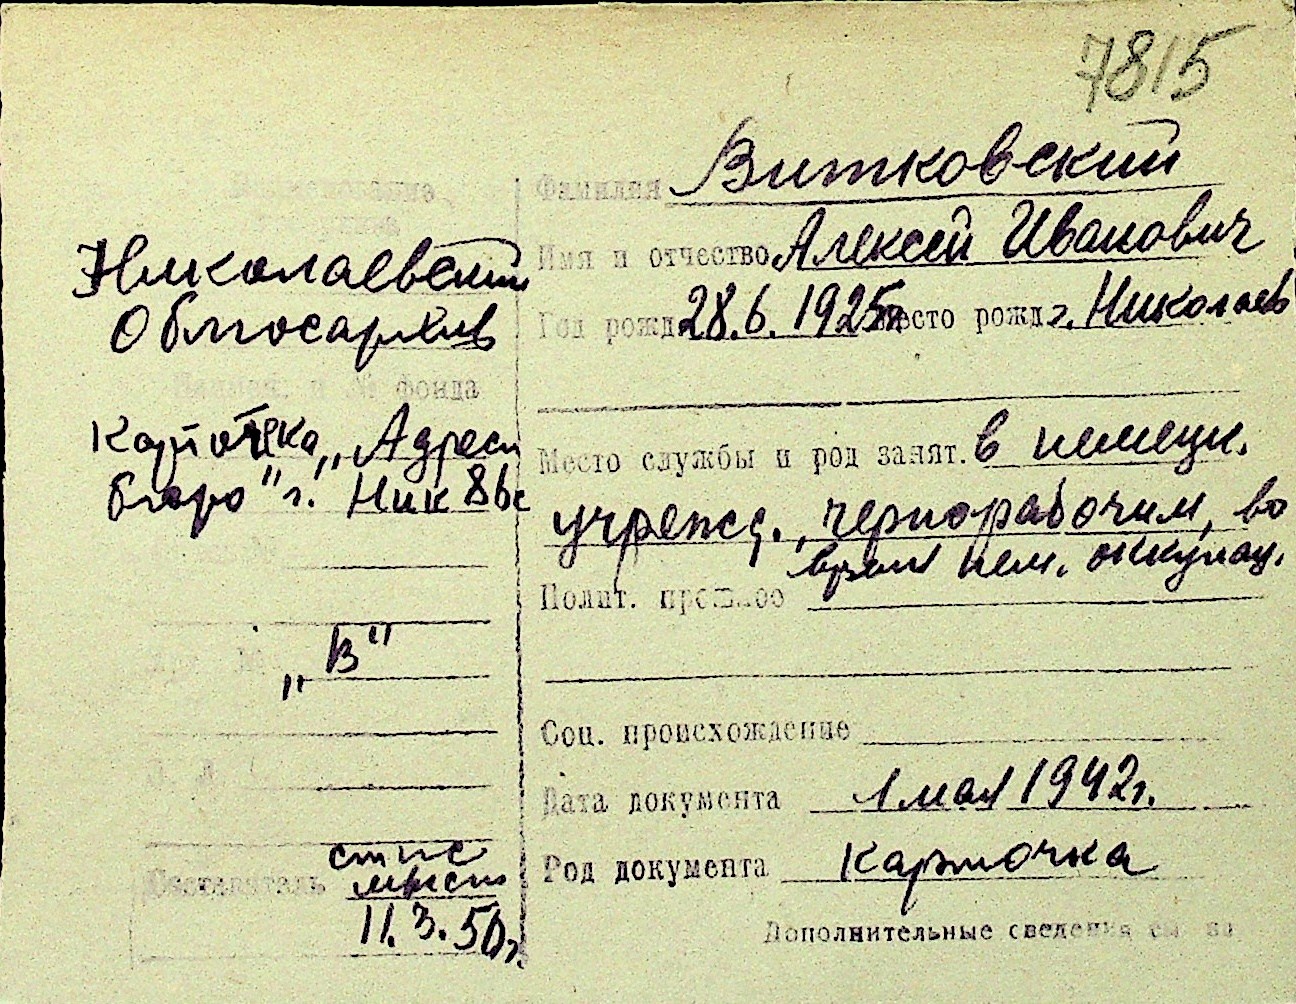 7815
Наименование
Николаевский
Облгосархив
Наимен. и № фонда
Картотека „Адресн
бюро" г. Ник
„В"
Составитель
11.3.50г.
Фамилия Витковский
Имя и отчество Алексей Иванович
Год рожд. 28.6.1925 Место рожд. г. Николаев
Место службы и род занят. в немецк.
учрежд., чернорабочим, во
время нем. оккупац.
Полит. прошлое
Соц. происхождение
Дата документа 1 мая 1942г.
Род документа Карточка
Дополнительные сведения см. на